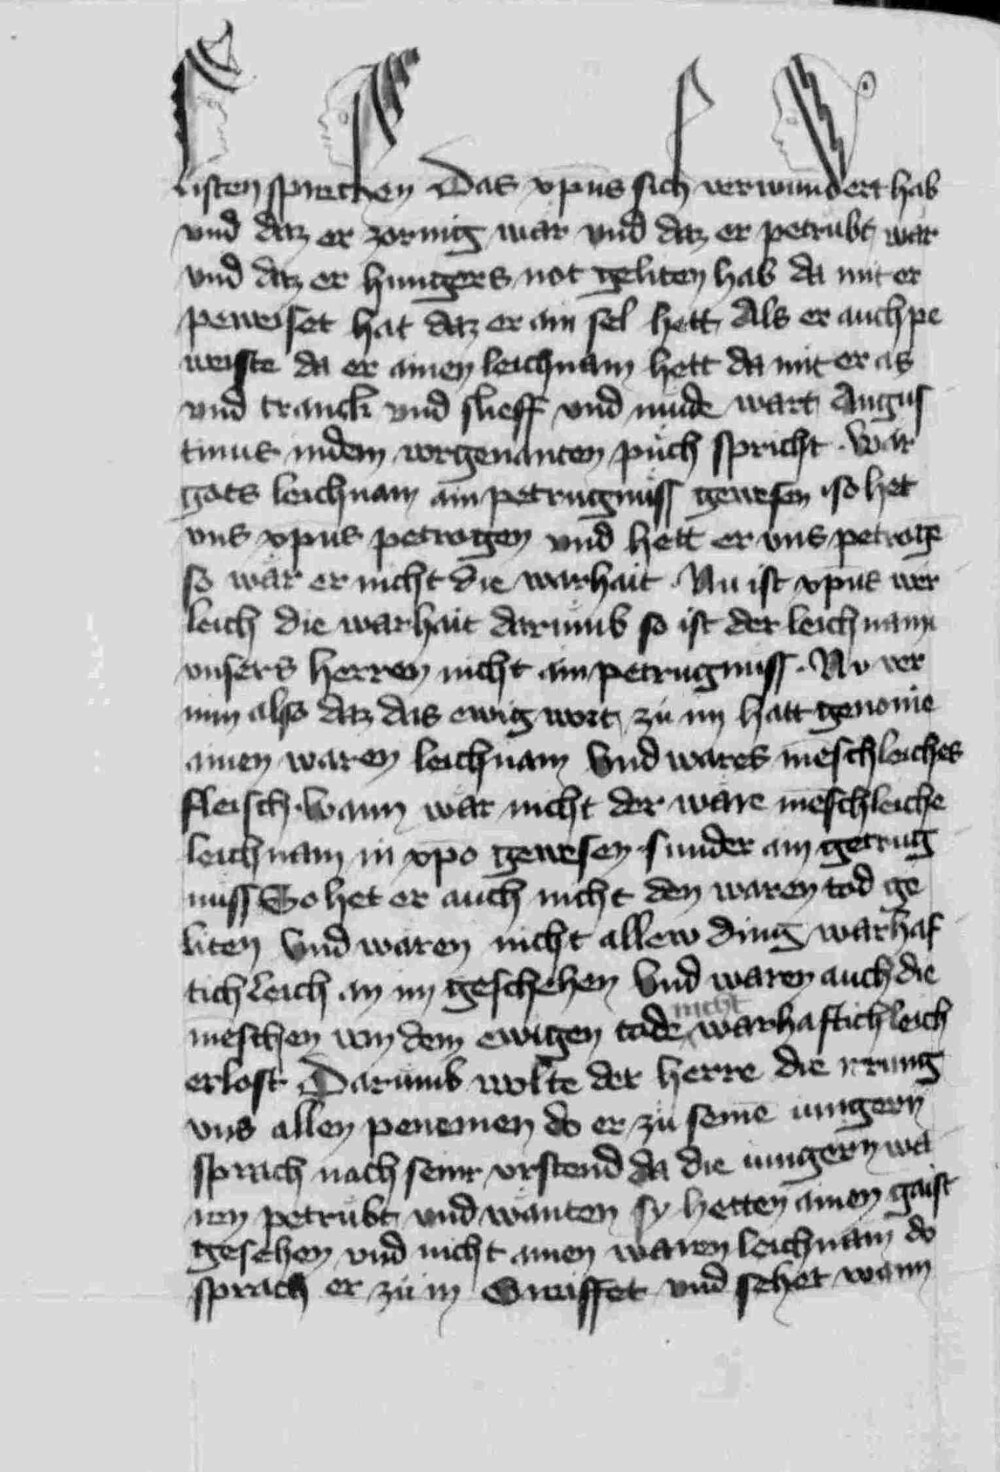 listen sprechen Das xpūs sich verwundert hab
vnd daz er zornig wär vnd daz er petrübt wär
vnd daz er hungers not geliten hab da mit er
peweiset hat daz er ain sel hett Als er auch pe
weiste da er ainen leichnam hett da mit er as
vnd tranck vnd slieff vnd müde wart Augus
tinus indem vorgenanten püch spricht · Wär
gots leichnam ain petrugnuss gewesen so het
vns xpūs petrogen vnd hett er vns petrogē
so wär er nicht die warhait · Nu ist xpūs wer
leich die warhait darumb so ist der leichnam
vnsers herren nicht ain petrugnuss · Nv ver
nim also daz das ewig wort zü im hatt genomē
ainen waren leichnam Vnd wares mēschleiches
fleisch · Wann wär nicht der ware mēschleiche
leichnam in xpo gewesen · sunder ain getrug
nuss So het er auch nicht den waren tod ge
liten Vnd wären nicht allew ding warhaf
tichleich an im geschehen Vnd waren auch die
mēschen von dem ewigen tode nicht warhaftichleich
erlost Darumb wolte der herre die irrung
vns allen penemen do er zü seinē iungern
sprach nach seinr vrstend da die iungern wa
ren petrübt vnd wänten sy hetten ainen gaist
gesehen vnd nicht ainen waren leichnam do
sprach er zü in Greiffet vnd sehet wann